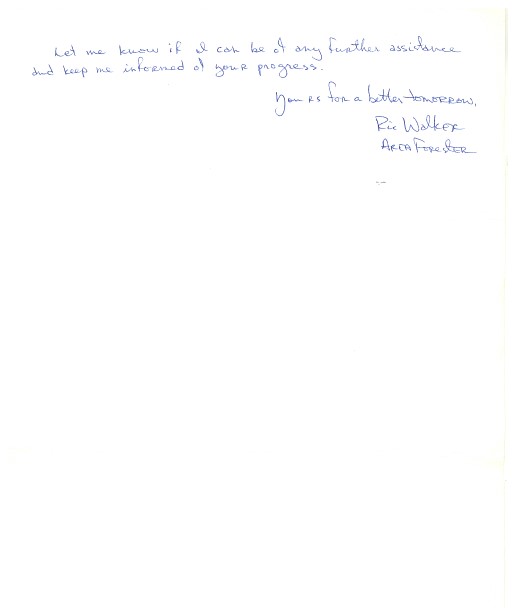 Let me know if I can be of any further assistance
and keep me informed of your progress.
Yours for a better tomorrow,
Ric Walker
Area Forester